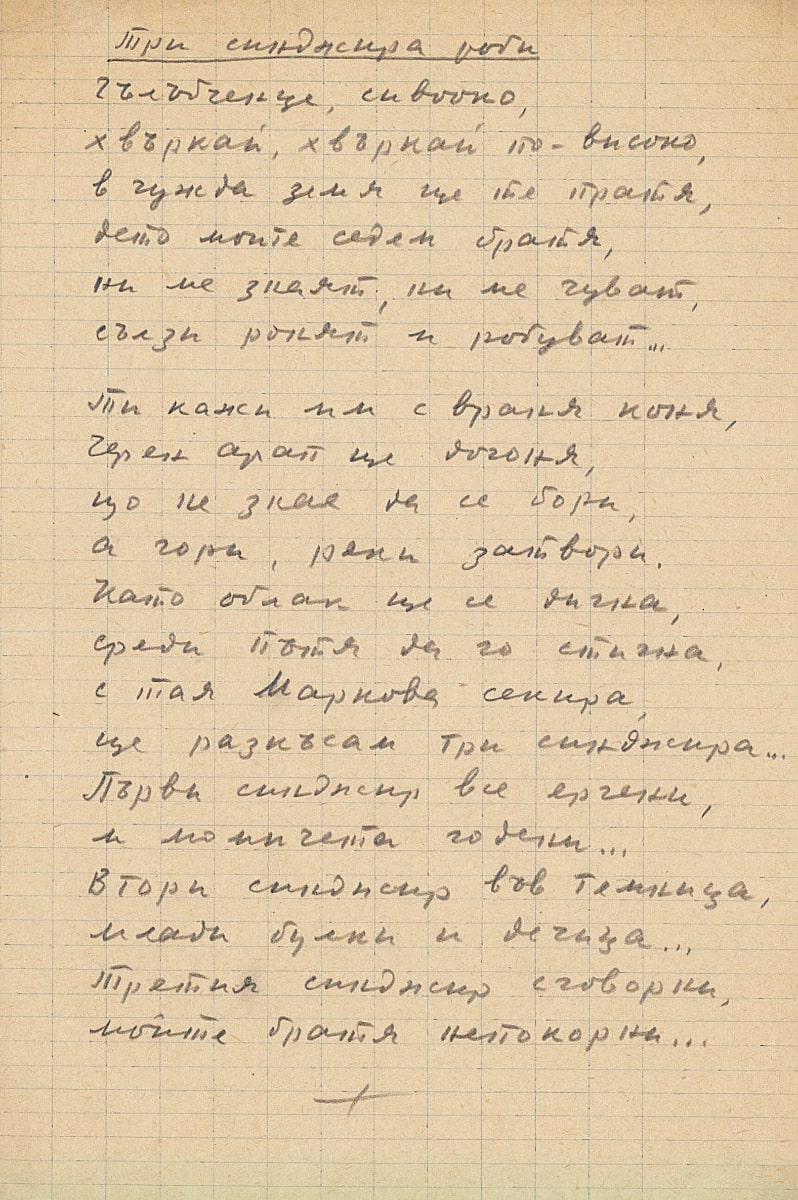 Три синджира роби
Гълъбченце, сивооко,
хвъркай, хвъркай по-високо,
в чужда земя ще те пратя,
дето моите седем братя,
ни ме знаят, ни ме чуват,
сълзи ронят и робуват...
Ти кажи им с враня коня,
Черен арап ще догоня,
що не знае да се бори,
а гори, реки затвори.
Като облак ще се дигна,
среди пътя да го стигна,
с тая Маркова секира,
ще разкъсам три синджира...
Първи синджир все ергени,
и момичета годени...
Втори синджир във темница,
млади булки и дечица...
Третия синджир сговорни,
мойте братя непокорни...